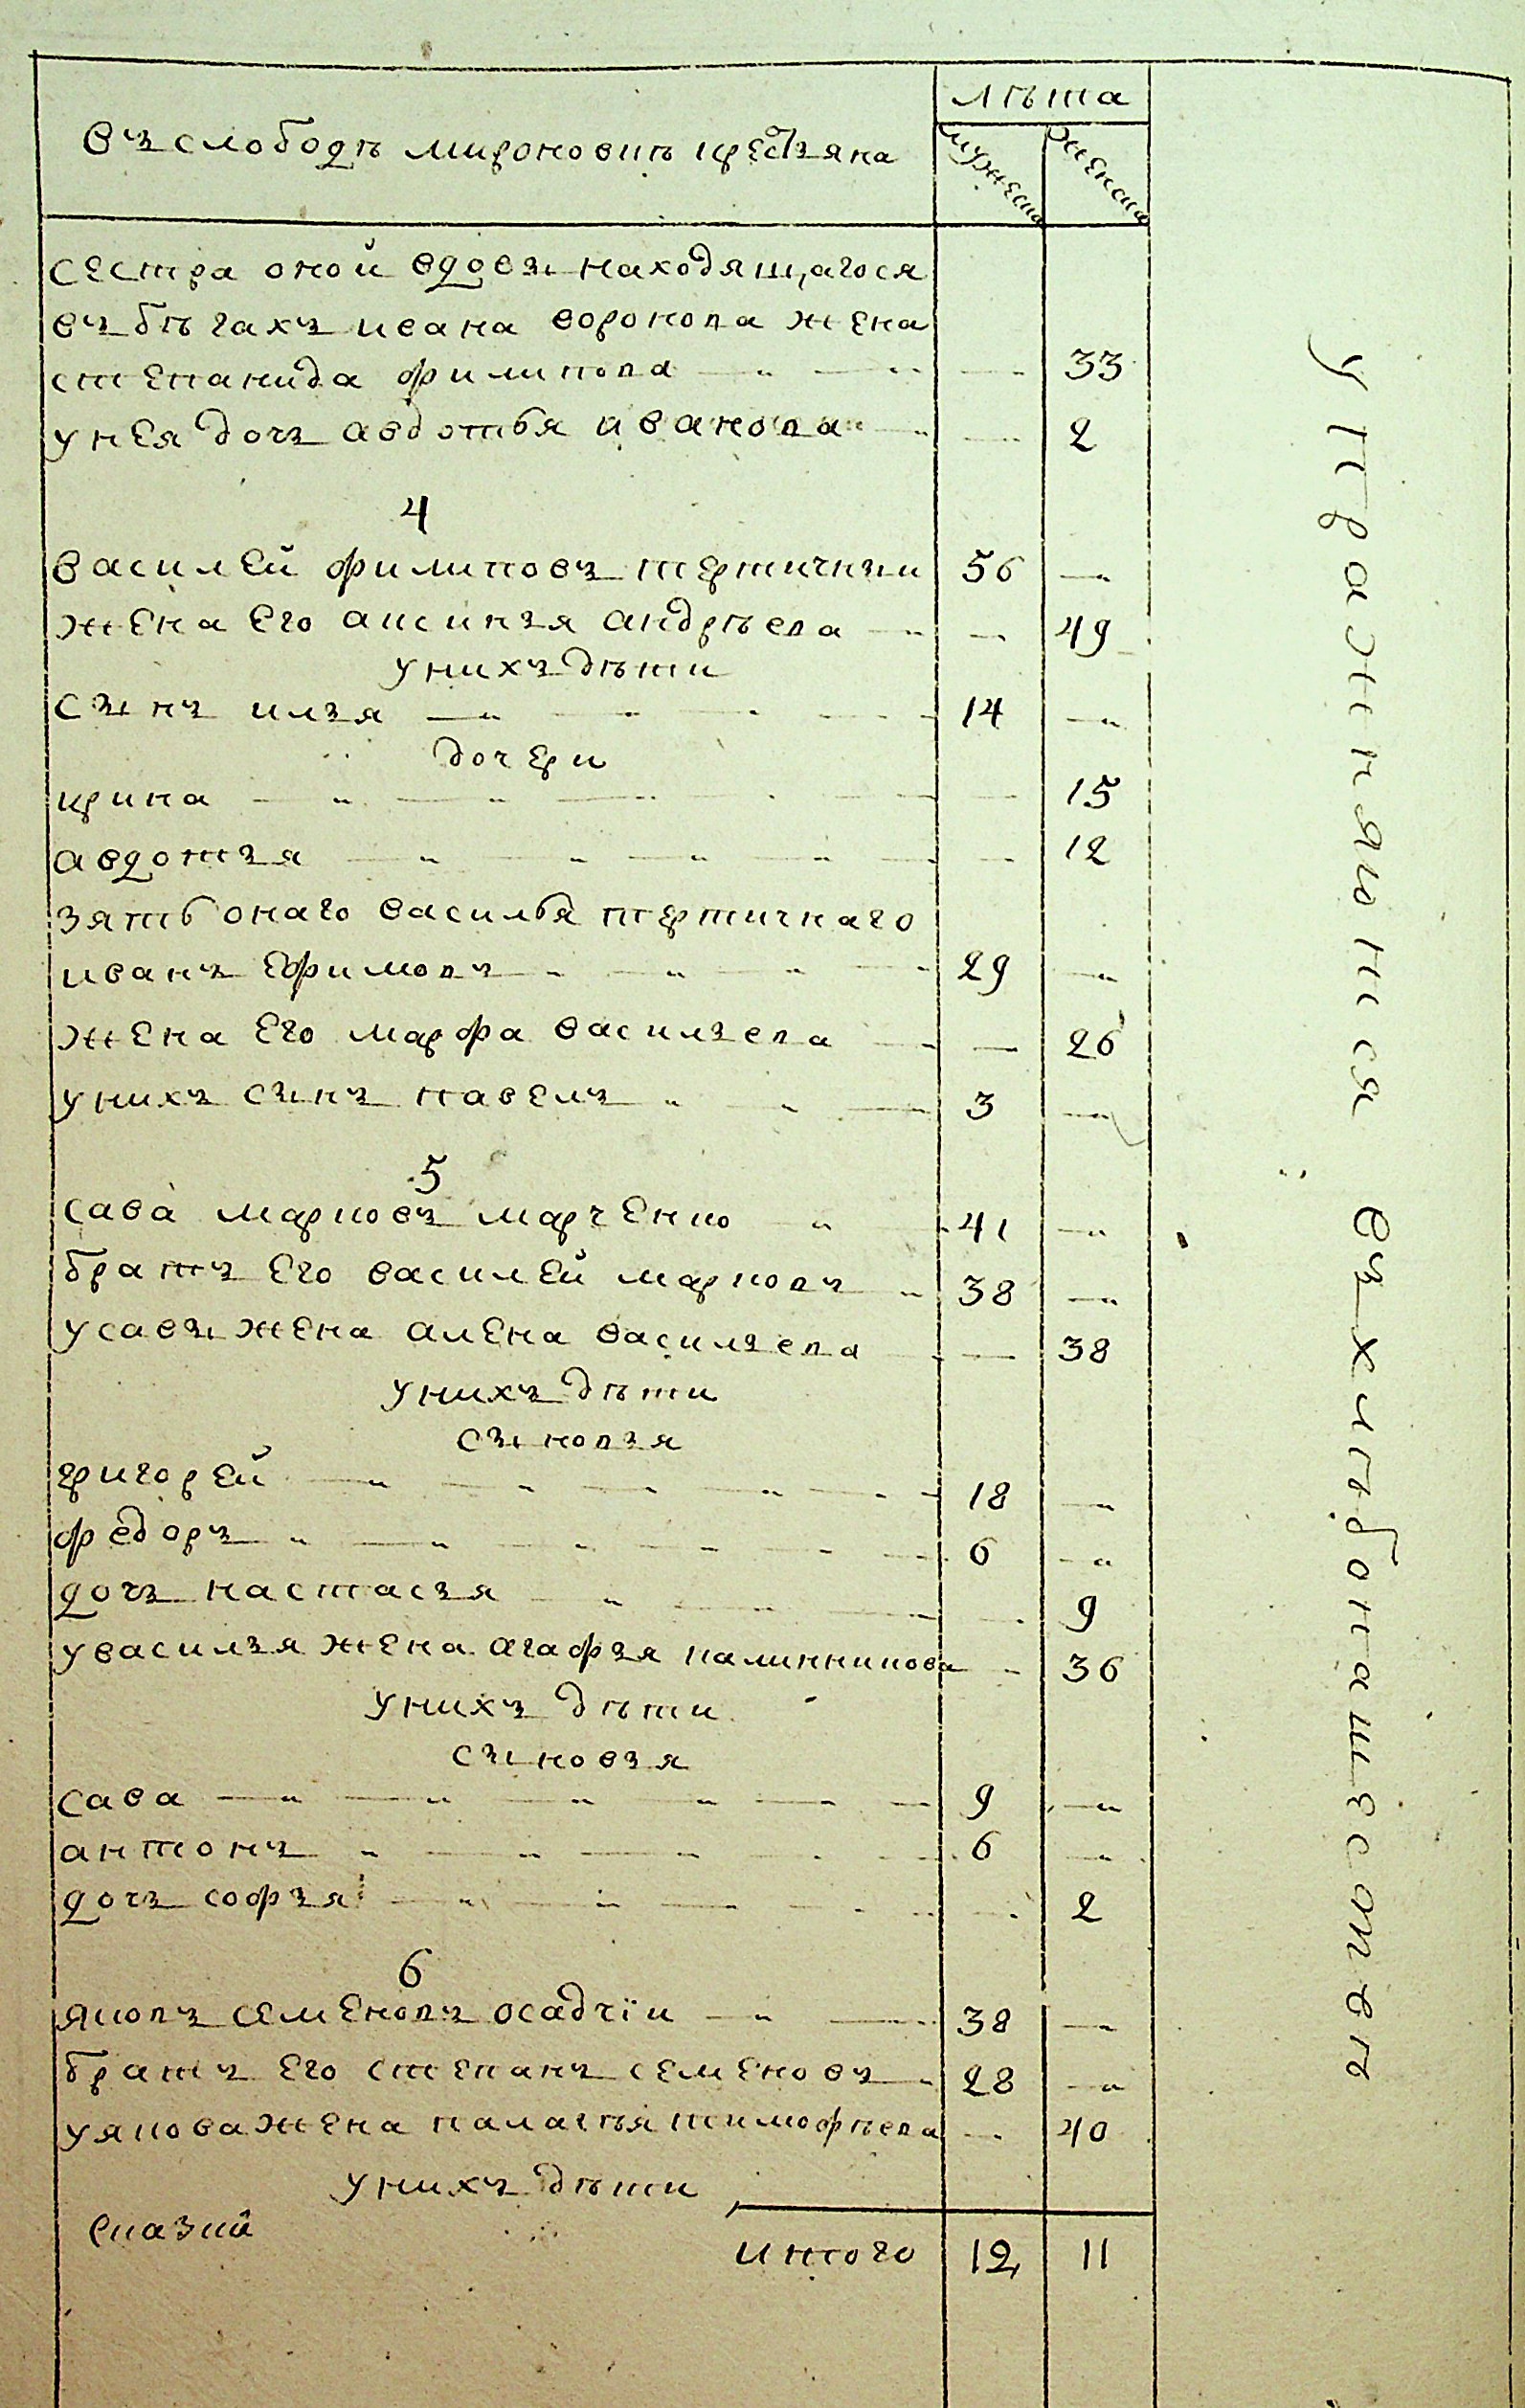 въ слободѣ мироновкѣ крестьянъ
лѣта
мужеска
женска
сестра оной вдовы находящагося
въ бѣгахъ ивана воронова жена
степанида филипова 33
у нея дочь авдотья иванова 2
4
василей филиповъ тертичный 56
жена его аксинья андрѣева 49
у нихъ дѣти
сынъ илья 14
дочери
ирина 15
авдотья 12
зять онаго василья тертичнаго
иванъ ефимовъ 29
жена его марфа васильева 26
у нихъ сынъ павелъ 3
5
сава марковъ марченко 41
братъ его василей марковъ 38
у савы жена алена васильева 38
у нихъ дѣти
сыновья
григорей 18
федоръ 6
дочь настасья 9
у василья жена агафья калинникова 36
у нихъ дѣти
сыновья
сава 9
антонъ 6
дочь софья 2
6
яковъ семеновъ осадчїи 38
братъ его степанъ семеновъ 28
у якова жена палагѣя тимофѣева 40
у нихъ дѣти
итого 12 11
сказки
упражняются въ хлѣбопашествѣ